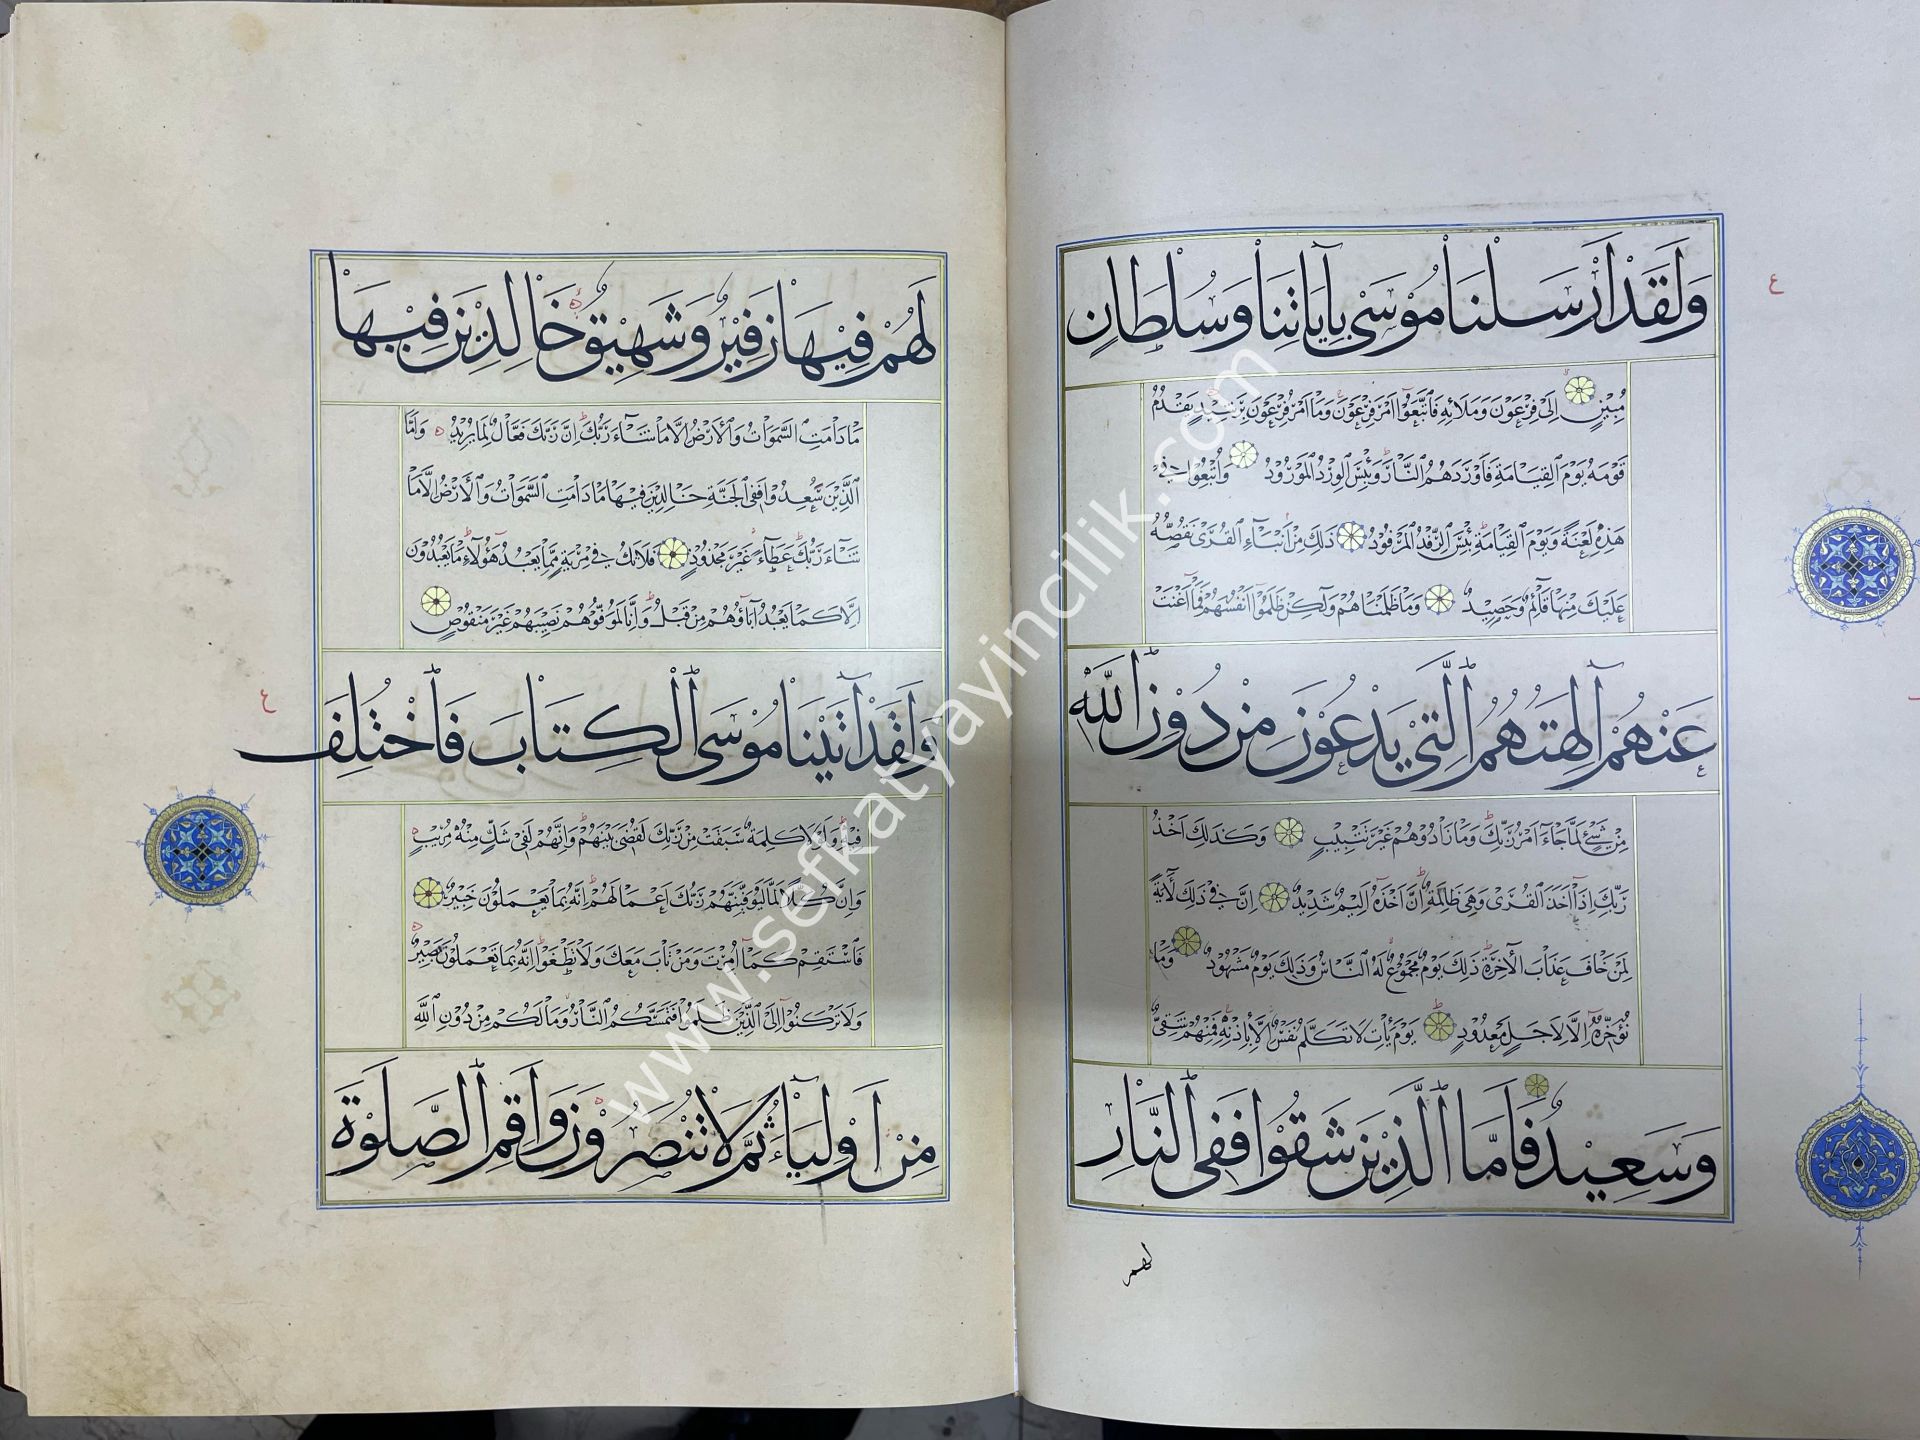 وَلَقَدْ اَرْسَلْنَا مُوسٰى بِاٰيَاتِنَا وَسُلْطَانٍ
مُبِينٍ اِلٰى فِرْعَوْنَ وَمَلَائِهِ فَاتَّبَعُوا اَمْرَ فِرْعَوْنَ وَمَا اَمْرُ فِرْعَوْنَ بِرَشِيدٍ يَقْدُمُ
قَوْمَهُ يَوْمَ الْقِيَامَةِ فَاَوْرَدَهُمُ النَّارَ وَبِئْسَ الْوِرْدُ الْمَوْرُودُ وَاُتْبِعُوا فِي
هٰذِهِ لَعْنَةً وَيَوْمَ الْقِيَامَةِ بِئْسَ الرِّفْدُ الْمَرْفُودُ ذٰلِكَ مِنْ اَنْبَاءِ الْقُرٰى نَقُصُّهُ
عَلَيْكَ مِنْهَا قَائِمٌ وَحَصِيدٌ وَمَا ظَلَمْنَاهُمْ وَلٰكِنْ ظَلَمُوا اَنْفُسَهُمْ فَمَا اَغْنَتْ
عَنْهُمْ اٰلِهَتُهُمُ الَّتِي يَدْعُونَ مِنْ دُونِ اللّٰهِ
مِنْ شَيْءٍ لَمَّا جَاءَ اَمْرُ رَبِّكَ وَمَا زَادُوهُمْ غَيْرَ تَتْبِيبٍ وَكَذٰلِكَ اَخْذُ
رَبِّكَ اِذَا اَخَذَ الْقُرٰى وَهِيَ ظَالِمَةٌ اِنَّ اَخْذَهُ اَلِيمٌ شَدِيدٌ اِنَّ فِي ذٰلِكَ لَاٰيَةً
لِمَنْ خَافَ عَذَابَ الْاٰخِرَةِ ذٰلِكَ يَوْمٌ مَجْمُوعٌ لَهُ النَّاسُ وَذٰلِكَ يَوْمٌ مَشْهُودٌ وَمَا
نُؤَخِّرُهُ اِلَّا لِاَجَلٍ مَعْدُودٍ يَوْمَ يَأْتِ لَا تَكَلَّمُ نَفْسٌ اِلَّا بِاِذْنِهِ فَمِنْهُمْ شَقِيٌّ
وَسَعِيدٌ فَاَمَّا الَّذِينَ شَقُوا فَفِي النَّارِ
لهم
لَهُمْ فِيهَا زَفِيرٌ وَشَهِيقٌ خَالِدِينَ فِيهَا
مَا دَامَتِ السَّمٰوَاتُ وَالْاَرْضُ اِلَّا مَا شَاءَ رَبُّكَ اِنَّ رَبَّكَ فَعَّالٌ لِمَا يُرِيدُ وَاَمَّا
الَّذِينَ سُعِدُوا فَفِي الْجَنَّةِ خَالِدِينَ فِيهَا مَا دَامَتِ السَّمٰوَاتُ وَالْاَرْضُ اِلَّا مَا
شَاءَ رَبُّكَ عَطَاءً غَيْرَ مَجْذُوذٍ فَلَا تَكُ فِي مِرْيَةٍ مِمَّا يَعْبُدُ هٰؤُلَاءِ مَا يَعْبُدُونَ
اِلَّا كَمَا يَعْبُدُ اٰبَاؤُهُمْ مِنْ قَبْلُ وَاِنَّا لَمُوَفُّوهُمْ نَصِيبَهُمْ غَيْرَ مَنْقُوصٍ
وَلَقَدْ اٰتَيْنَا مُوسَى الْكِتَابَ فَاخْتُلِفَ
فِيهِ وَلَوْلَا كَلِمَةٌ سَبَقَتْ مِنْ رَبِّكَ لَقُضِيَ بَيْنَهُمْ وَاِنَّهُمْ لَفِي شَكٍّ مِنْهُ مُرِيبٍ
وَاِنَّ كُلًّا لَمَّا لَيُوَفِّيَنَّهُمْ رَبُّكَ اَعْمَالَهُمْ اِنَّهُ بِمَا يَعْمَلُونَ خَبِيرٌ
فَاسْتَقِمْ كَمَا اُمِرْتَ وَمَنْ تَابَ مَعَكَ وَلَا تَطْغَوْا اِنَّهُ بِمَا تَعْمَلُونَ بَصِيرٌ
وَلَا تَرْكَنُوا اِلَى الَّذِينَ ظَلَمُوا فَتَمَسَّكُمُ النَّارُ وَمَا لَكُمْ مِنْ دُونِ اللّٰهِ
مِنْ اَوْلِيَاءَ ثُمَّ لَا تُنْصَرُونَ وَاَقِمِ الصَّلٰوةَ
ع
ع
www.sefkatyayincilik.com